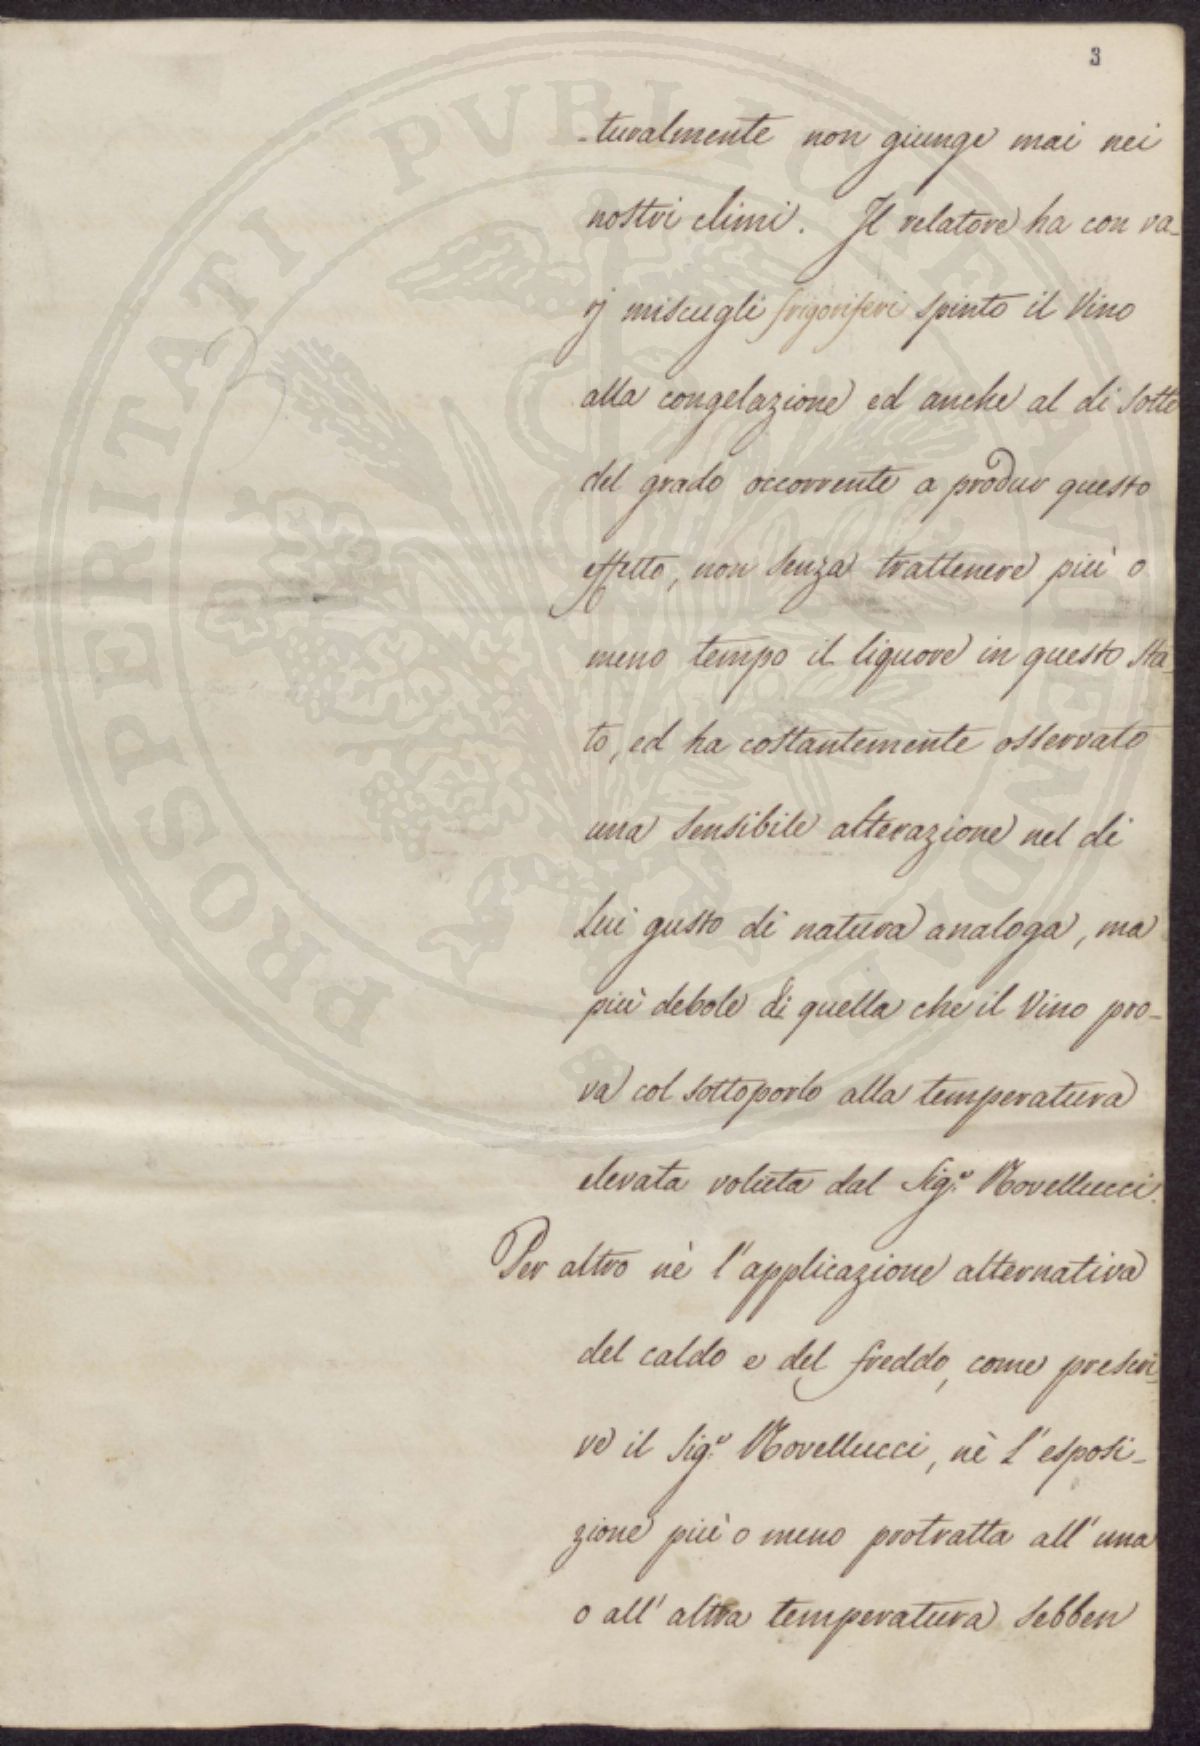 3
-turalmente non giunge mai nei
nostri climi. Il relatore ha con va-
rj miscugli frigoriferi spinto il Vino
alla congelazione ed anche al di sotto
del grado occorrente a produr questo
effetto, non senza trattenere più o
meno tempo il liquore in questo sta-
to, ed ha costantemente osservato
una sensibile alterazione nel di
lui gusto di natura analoga, ma
più debole di quella che il Vino pro-
va col sottoporlo alla temperatura
elevata voluta dal Sig.r Novellucci.
Per altro nè l'applicazione alternativa
del caldo e del freddo, come prescri-
ve il Sig.r Novellucci, nè l'esposi-
zione più o meno protratta all'una
o all'altra temperatura sebben
PROSPERITATI PUBLICAE AUGENDAE